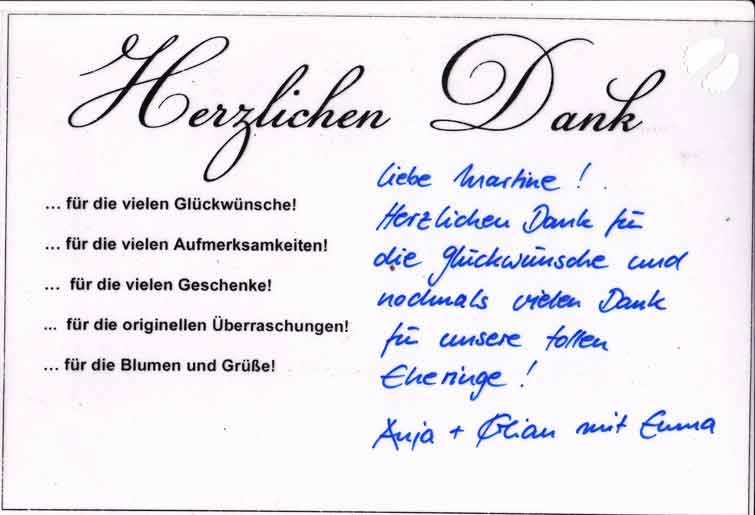 Herzlichen Dank
... für die vielen Glückwünsche!
... für die vielen Aufmerksamkeiten!
... für die vielen Geschenke!
... für die originellen Überraschungen!
... für die Blumen und Grüße!
Liebe Martine!
Herzlichen Dank für
die Glückwünsche und
nochmals vielen Dank
für unsere tollen
Eheringe!
Anja + mit Emma